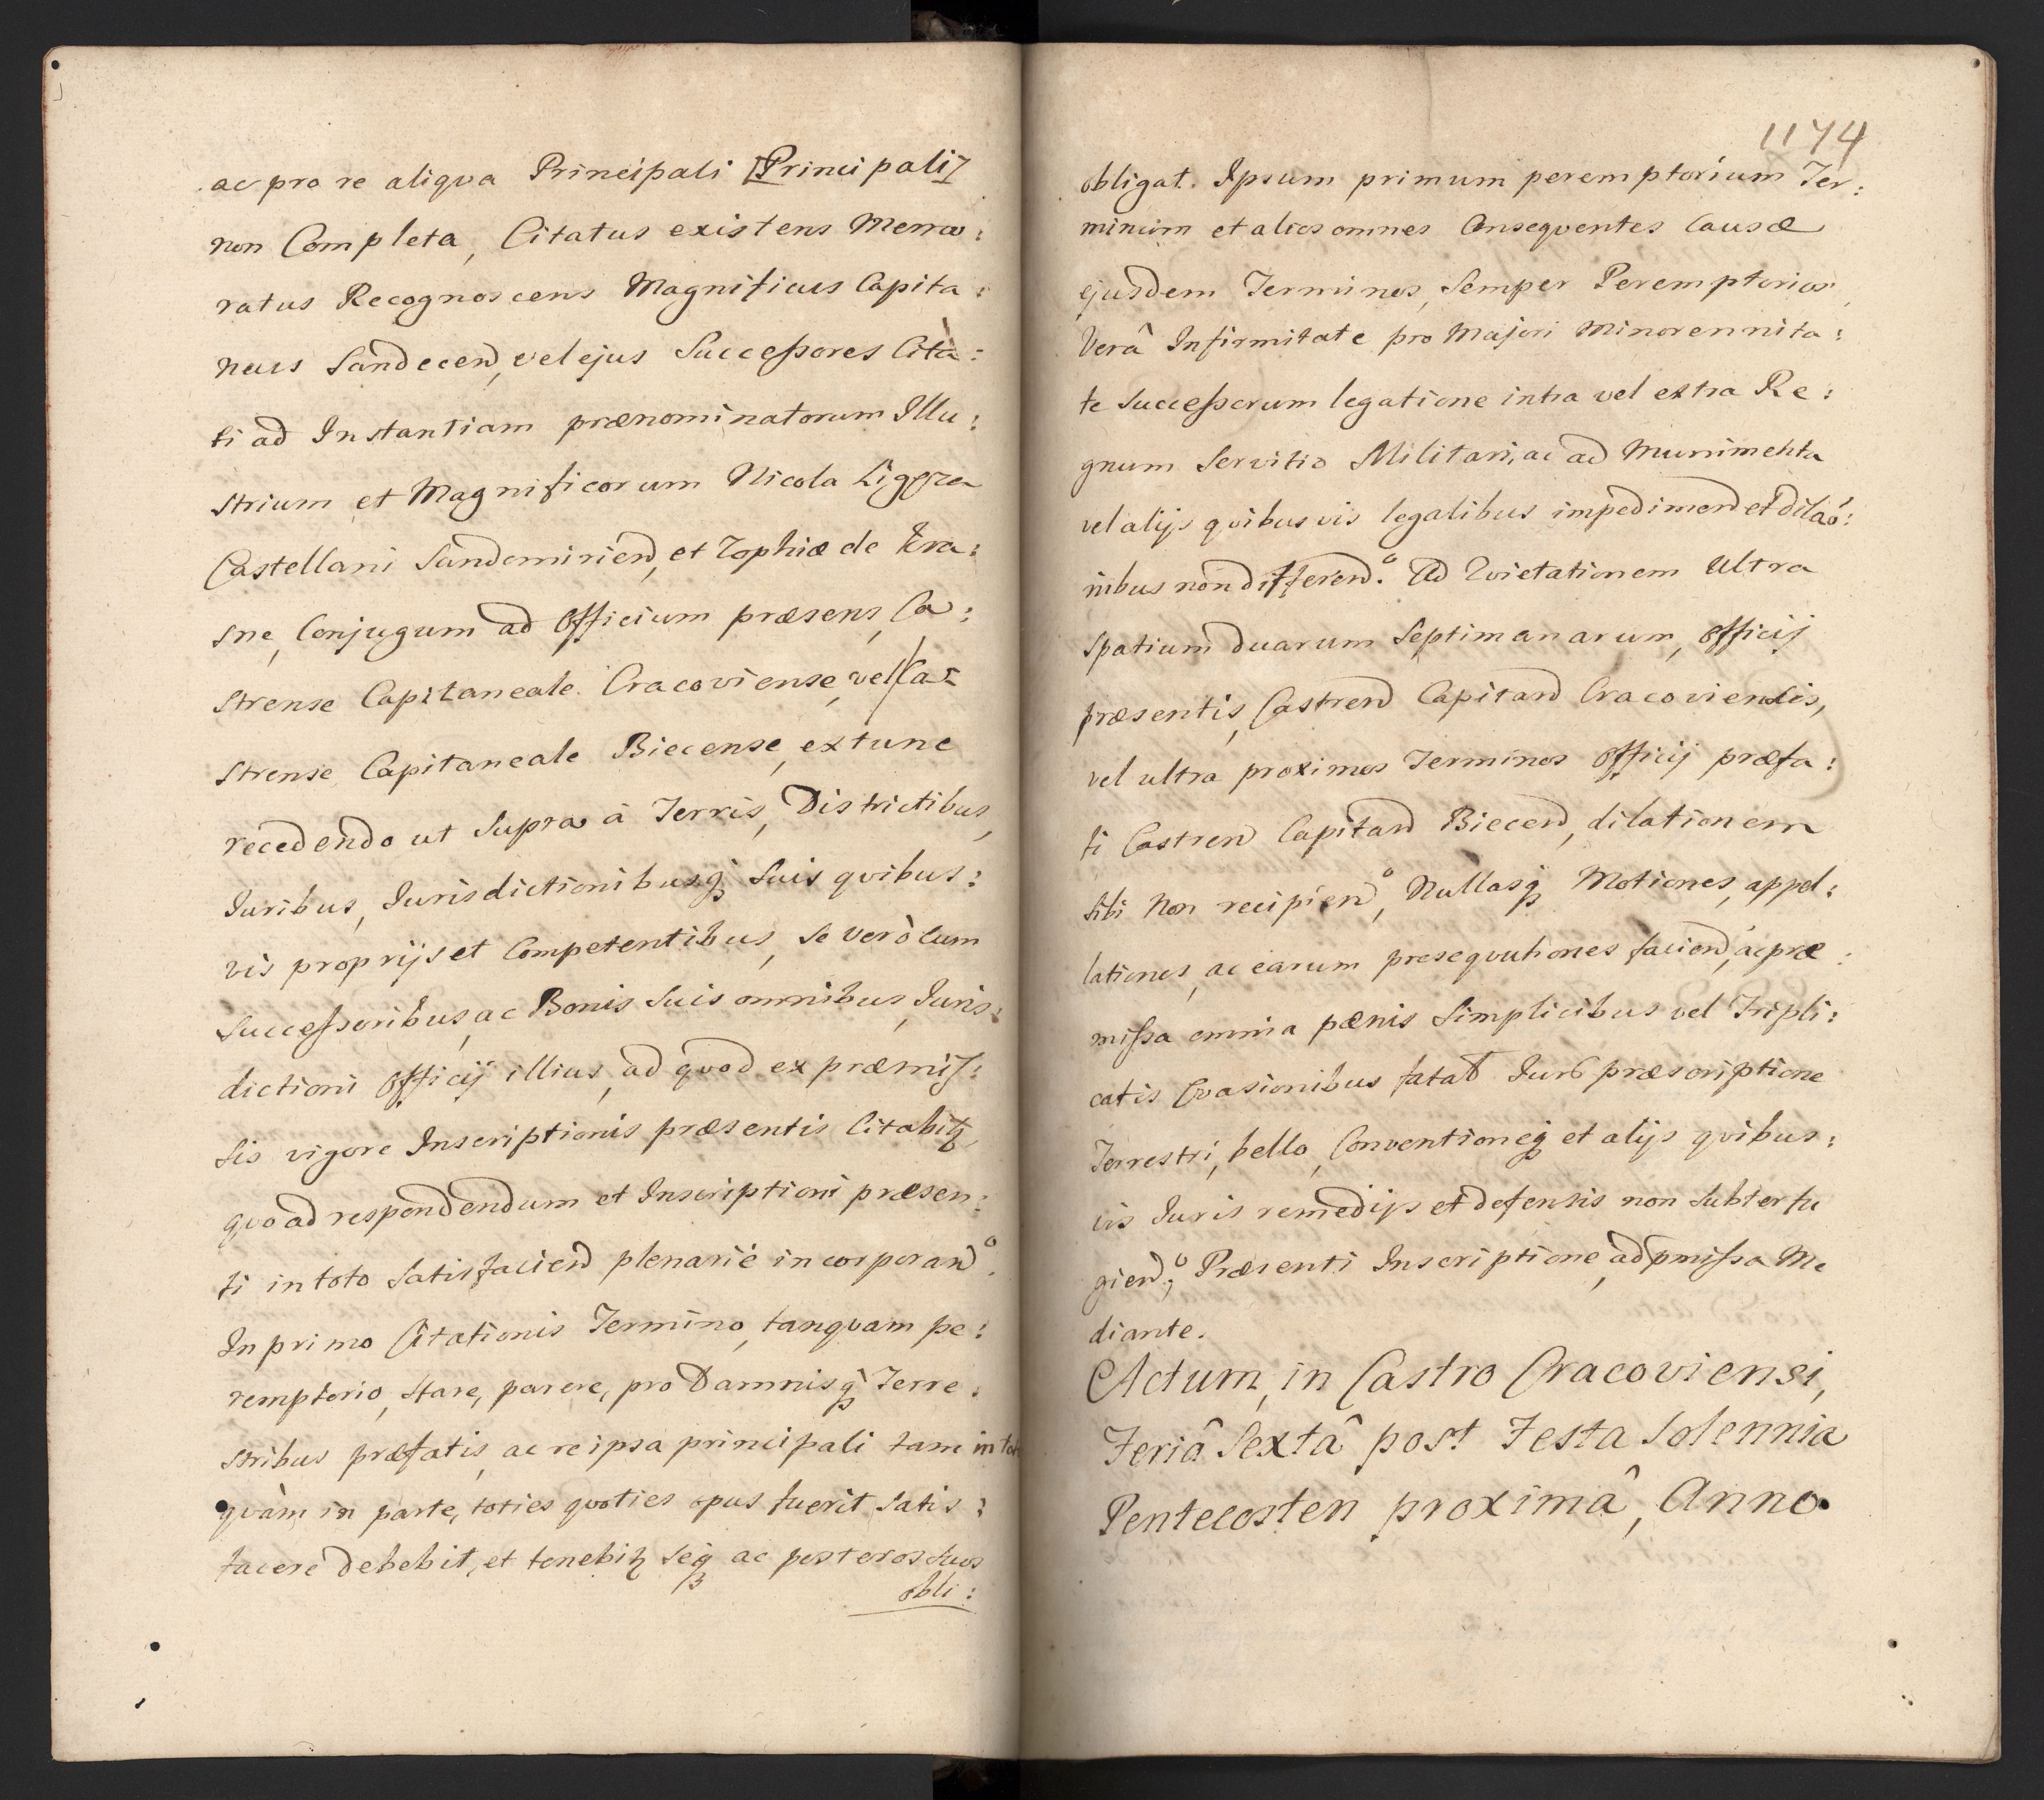 ac pro re aliqva Principali [Principali]
non Completa, Citatus existens Memo:
ratus Recognoscens Magnificus Capita:
neus Sandecen, vel ejus Successores Cita:
ti ad Instantiam prænominatorum Illu:
strium et Magnificorum Nicola Ligęza
Castellani Sandomirien, et Zophiæ de Kra:
sne, Conjugum ad Officium præsens, Ca:
strense Capitaneale Cracoviense, vel Ca:
strense Capitaneale Biecense, extunc
recedendo ut Supra à Terris, Districtibus,
Juribus, Jurisdictionibusq; Suis qvibus:
vis proprijs et Competentibus, se verò cum
Successoribus, ac Bonis Suis omnibus, Juris:
dictioni Officij illius, ad qvod ex præmis:
sis vigore Inscriptionis præsentis Citabitz
qvo ad respondendum et Inscriptioni præsen:
ti in toto Satisfacien plenariè incorporan°.
In primo Citationis Termino, tanqvam pe:
remptorio, stare, parere, pro Damnisq; Terre:
stribus præfatis, ac re ipsa principali tam in to
qvàm in parte, toties qvoties opus fuerit Satis:
facere debebit, et tenebitz Seq; ac posteros suos
obli:
1174
obligat. Ipsum primum peremptorium Ter:
minum et alios omnes Conseqventes Causæ
ejusdem Terminos, Semper Peremptorios,
Verâ Infirmitate pro Majori Minorennita:
te Successorum legatione intra vel extra Re:
gnum Servitio Militari, ac ad Munimenta
vel alijs qvibusvis legalibus impedimen et dilaó:
nibus non differen°. Ad Qvietationem Ultra
Spatium duarum Septimanarum, Officij
præsentis, Castren Capitan Cracoviensis,
vel ultra proximos Terminos Officij præfa:
ti Castren Capitan Biecen, dilationem
sibi Non recipien°, Nullasq; Motiones, appel:
lationes, ac earum proseqvutiones facien, ac præ:
missa omnia pænis Simplicibus vel Tripli:
catis Evasionibus fatal Jur præscriptione
Terrestri, bello, Conventioneq; et alijs qvibus:
vis Juris remedijs et defensis non Subterfu
gien°; Præsenti Inscriptione, ad pmissa Me
diante.
Actum, in Castro Cracoviensi,
Feriâ Sextâ post Festa Solennia
Pentecosten proximâ, Anno